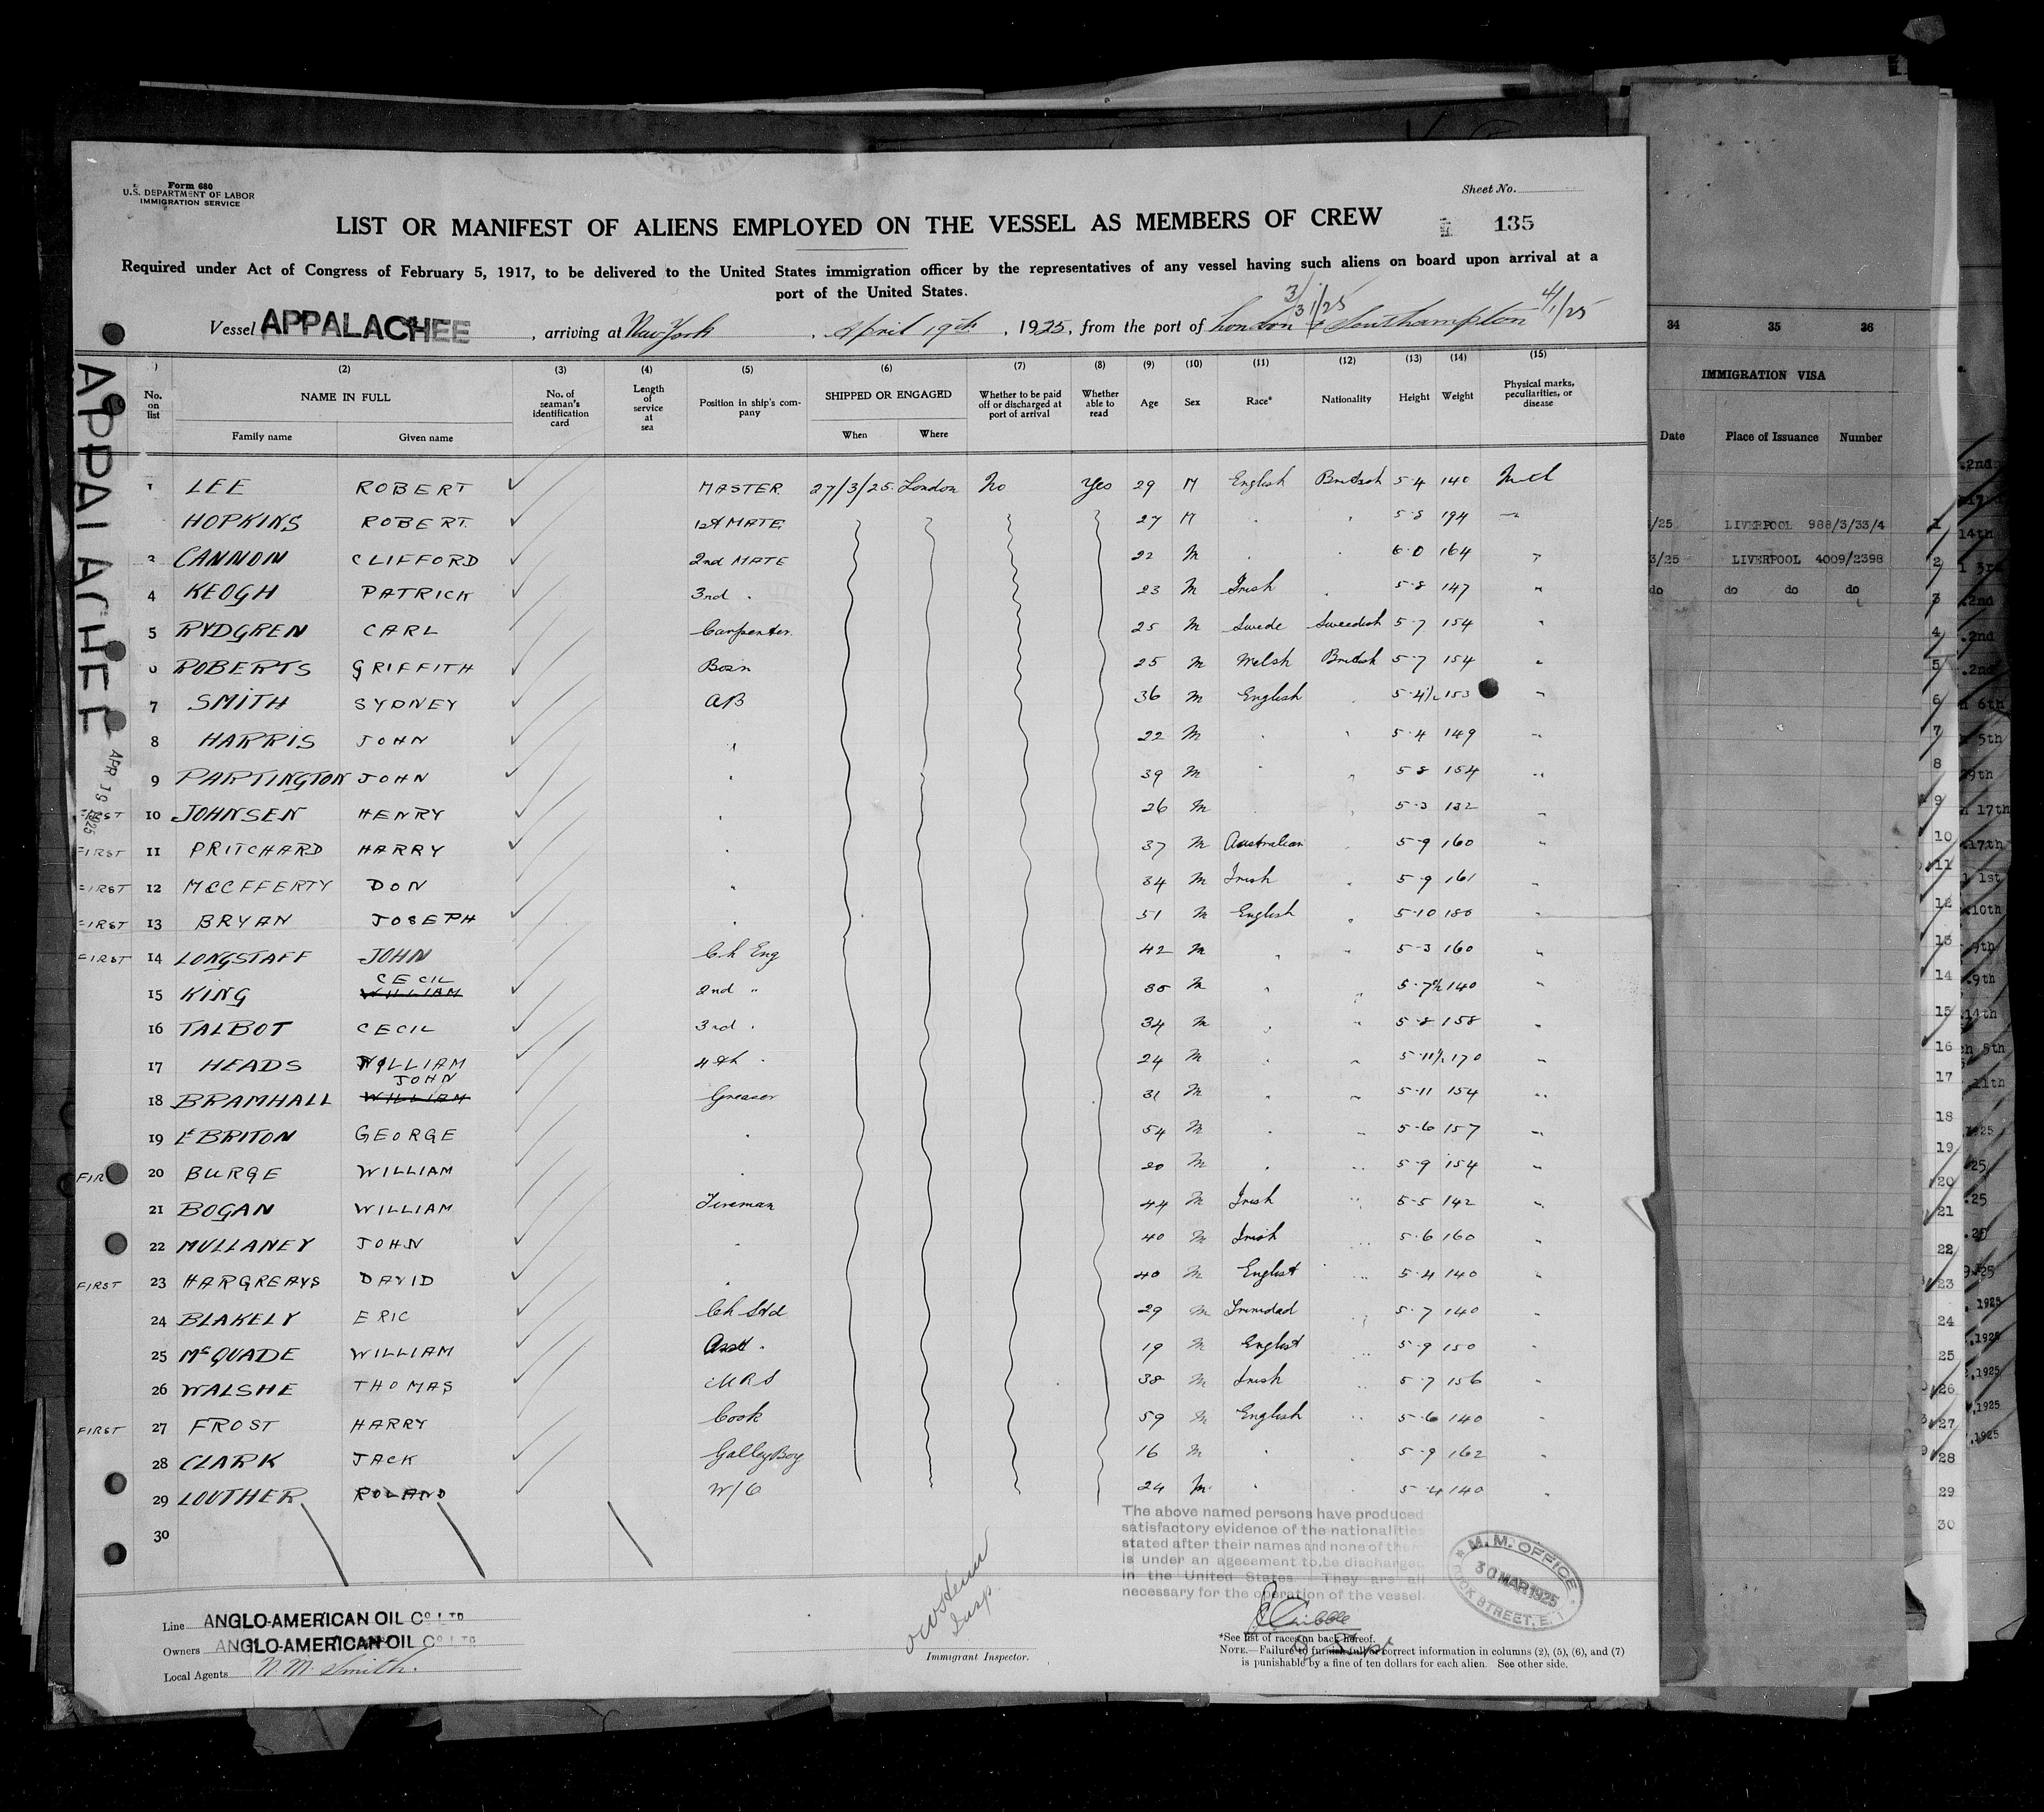 Form 680
U.S. DEPARTMENT OF LABOR
IMMIGRATION SERVICE
Sheet No.
LIST OR MANIFEST OF ALIENS EMPLOYED ON THE VESSEL AS MEMBERS OF CREW 135
Required under Act of Congress of February 5, 1917, to be delivered to the United States immigration officer by the representatives of any vessel having such aliens on board upon arrival at a
port of the United States.
3/31/25 4/1/25
Vessel APPALACHEE, arriving at New York, April 19th, 1925, from the port of London & Southampton
(2) (3) (4) (5) (6) (7) (8) (9) (10) (11) (12) (13) (14) (15)
No. on list NAME IN FULL Family name Given name No. of seaman's identification card Length of service at sea Position in ship's company SHIPPED OR ENGAGED When Where Whether to be paid off or discharged at port of arrival Whether able to read Age Sex Race* Nationality Height Weight Physical marks, peculiarities, or disease
1 LEE ROBERT MASTER 27/3/25 London No Yes 29 M English British 5-4 140
HOPKINS ROBERT 1st MATE 27 M 5-8 194
3 CANNON CLIFFORD 2nd MATE 22 M 6-0 164
4 KEOGH PATRICK 3rd 23 M Irish 5-8 147 "
5 RYDGREN CARL Carpenter 25 M Swede Sweedish 5-7 154 "
6 ROBERTS GRIFFITH Bosn 25 M Welsh British 5-7 154 "
7 SMITH SYDNEY AB 36 M English 5-4½ 153 "
8 HARRIS JOHN " 22 M 5-4 149 "
9 PARTINGTON JOHN " 39 M 5-8 154 "
FIRST 10 JOHNSEN HENRY " 26 M 5-3 132 "
FIRST 11 PRITCHARD HARRY " 37 M Australian 5-9 160 "
FIRST 12 MCCFFERTY DON " 34 M Irish " 5-9 161 "
FIRST 13 BRYAN JOSEPH " 51 M English " 5-10 "
FIRST 14 LONGSTAFF JOHN Ch Eng 42 M " " 5-3 160 "
CECIL
15 KING WILLIAM 2nd " M " " 5-7½ 140 "
16 TALBOT CECIL 3rd " 34 M " " 5-8 158 "
17 HEADS WILLIAM 4th " 24 M " " 5-11½ 170 "
JOHN
18 BRAMHALL WILLIAM Greaser 31 M " " 5-11 154 "
19 LE BRITON GEORGE " 54 M " " 5-6 157 "
FIR 20 BURGE WILLIAM " 20 M " " 5-9 154 "
21 BOGAN WILLIAM Fireman 44 M Irish " 5-5 142 "
22 MULLANEY JOHN " 40 M Irish " 5-6 160 "
FIRST 23 HARGREAVS DAVID " 40 M English " 5-4 140 "
24 BLAKELY ERIC Ch Std 29 M Trinidad " 5-7 140 "
25 McQUADE WILLIAM Asst " 19 M English " 5-9 150 "
26 WALSHE THOMAS MRS 38 M Irish " 5-7 156 "
FIRST 27 FROST HARRY Cook 59 M English " 5-6 140 "
28 CLARK JACK Galley Boy 16 M " " 5-9 162 "
29 LOUTHER ROLAND W/O 24 M " " 5-4 140 "
30
APPALACHEE
APR 19 1925
The above named persons have produced
satisfactory evidence of the nationalities
stated after their names and none of them
is under an ageeement to be discharged
in the United States They are all
necessary for the operation of the vessel.
M. M. OFFICE
30 MAR 1925
STREET, E. 1
Line ANGLO-AMERICAN OIL Co LTD
Owners ANGLO-AMERICAN OIL Co LTD
Local Agents N. M. Smith.
Insp
Immigrant Inspector.
*See list of races on back hereof.
NOTE.—Failure to furnish full or correct information in columns (2), (5), (6), and (7)
is punishable by a fine of ten dollars for each alien. See other side.
34 35 36
IMMIGRATION VISA
Date Place of Issuance Number
/25 LIVERPOOL 988/3/33/4 1
3/25 LIVERPOOL 4009/2398 2
do do do do 3
4
5
6
7
8
9
10
11
12
13
14
15
16
17
18
19
20
21
22
23
24
25
26
27
28
29
30